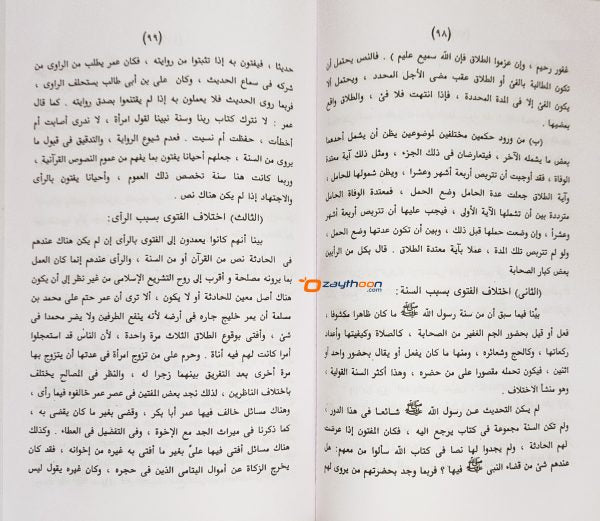 (٩٨)
غفور رحيم ، وإن عزموا الطلاق فإن الله سميع عليم ) . فالنص يحتمل أن
تكون المطالبة بالفئ أو الطلاق عقب مضى الأجل المحدد ، ويحتمل ألا
يكون الفئ إلا فى المدة المحددة ، فإذا انتهت فلا فئ ، والطلاق واقع
بمضيها .
(ب) من ورود حكمين مختلفين لموضوعين يظن أن يشمل أحدهما
بعض ما يشمله الآخر ، فيتعارضان فى ذلك الجزء ، ومثل ذلك آية معتدة
الوفاة ، فقد أوجبت أن تتربص أربعة أشهر وعشرا ، ويظن شمولها للحامل ،
وآية الطلاق جعلت عدة الحامل وضع الحمل ، فمعتدة الوفاة الحامل
مترددة بين أن تشملها الآية الأولى ، فيجب عليها أن تتربص أربعة أشهر
وعشراً ، وإن وضعت حملها قبل ذلك ، وبين أن تكون عدتها وضع الحمل ،
ولو لم تتربص تلك المدة ، عملا بآية معتدة الطلاق . قال بكل من الرأيين
بعض كبار الصحابة
(الثانى) اختلاف الفتوى بسبب السنة :
بيَّنا فيما سبق أن من سنة رسول الله ﷺ ما كان ظاهرا مكشوفا ،
فعل أو قيل بحضور الجم الغفير من الصحابة ، كالصلاة وكيفيتها وأعداد
ركعاتها ، وكالحج وشعائره ، ومنها ما كان يفعل أو يقال بحضور واحد أو
اثنين ، فيكون تحمله مقصورا على من حضره ، وهذا أكثر السنة القولية ،
وهو منشأ الاختلاف .
لم يكن التحديث عن رسول الله ﷺ شائعا فى هذا الدور ،
ولم تكن السنة مجموعة فى كتاب يرجع اليه ، فكان المفتون إذا عرضت
لهم الحادثة ، ولم يجدوا لها نصا فى كتاب الله سألوا من معهم: هل
عندهم شئ من قضاء النبى ﷺ فيها ؟ فربما وجد بحضرتهم من يروى لهم
(٩٩)
حديثا ، فيفتون به إذا تثبتوا من روايته ، فكان عمر يطلب من الراوى من
شركه فى سماع الحديث ، وكان على بن أبى طالب يستحلف الراوى ،
فربما روى الحديث فلا يعملون به إذا لم يقتنعوا بصدق روايته . كما قال
عمر : لا نترك كتاب ربنا وسنة نبينا لقول امرأة ، لا ندرى أصابت أم
أخطأت ، حفظت أم نسيت . فعدم شيوع الرواية ، والتدقيق فى قبول ما
يروى من السنة ، جعلهم أحيانا يفتون بما يفهم من عموم النصوص القرآنية ،
وربما كانت هنا سنة تخصص ذلك العموم ، وأحيانا يفتون بالرأى
والاجتهاد إذا لم يكن هناك نص .
(الثالث) اختلاف الفتوى بسبب الرأى:
بينا أنهم كانوا يعمدون إلى الفتوى بالرأى إن لم يكن هناك عندهم
فى الحادثة نص من القرآن أو من السنة ، والرأى عندهم إنما كان العمل
بما يرونه مصلحة و أقرب إلى روح التشريع الإسلامى من غير نظر إلى أن يكون
هناك أصل معين للحادثة أو لا يكون ، ألا ترى أن عمر حتم على محمد بن
مسلمة أن يمر خليج جاره فى أرضه لأنه ينفع الطرفين ولا يضر محمدا فى
شئ ، وأفتى بوقوع الطلاق الثلاث مرة واحدة ، لأن الناس قد استعجلوا
أمرا كانت لهم فيه أناة . وحرم على من تزوج امرأة فى عدتها أن يتزوج بها
مرة أخرى بعد التفريق بينهما زجرا له ، والنظر فى المصالح يختلف
باختلاف الناظرين ، لذلك نجد بعض المفتين فى عصر عمر خالفوه فيما رأى ،
وهناك مسائل خالف فيها عمر أبا بكر ، وقضى بغير ما كان يقضى به ،
كما ذكرنا فى ميراث الجد مع الإخوة ، وفى التفضيل فى العطاء . وكذلك
هناك مسائل أفتى فيها علىّ بغير ما أفتى به غيره من إخوانه ، فقد كان
يخرج الزكاة عن أموال اليتامى الذين فى حجره ، وكان غيره يقول ليس
zaythoon
.com